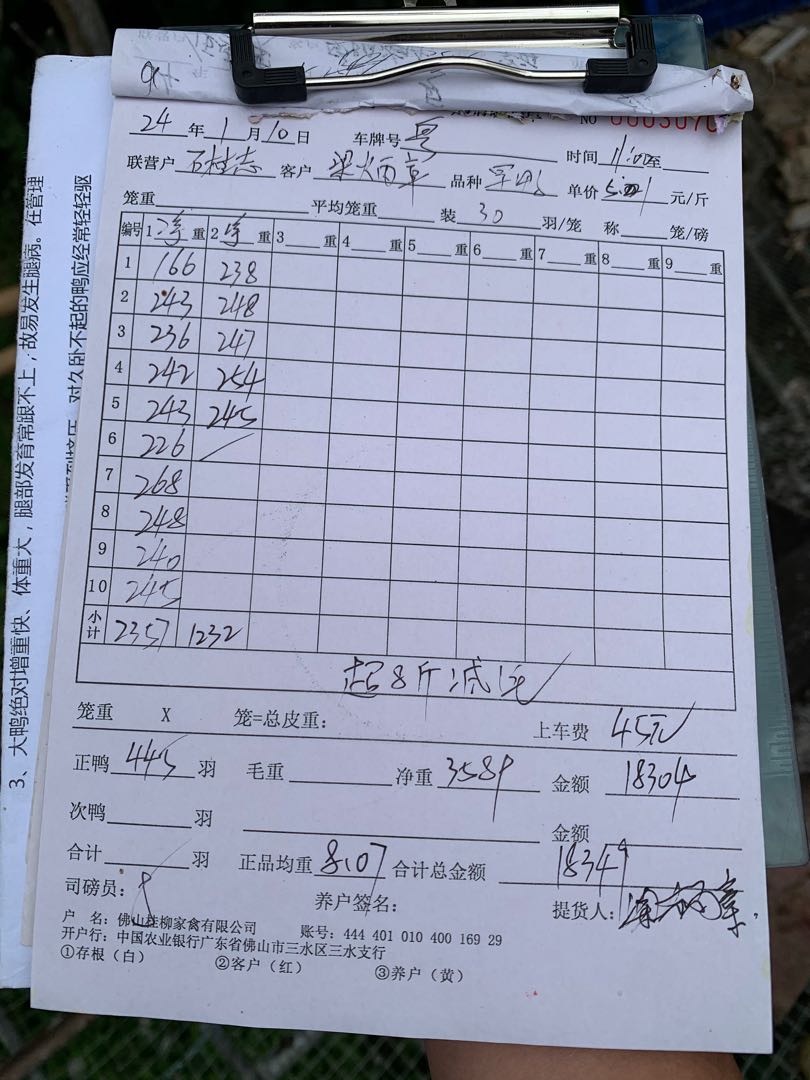 NO 0003070
24 年 1 月 10 日 车牌号 粤 时间 11:00 至
联营户 石桂志 客户 梁火丙章 品种 单价 5.1 元/斤
笼重 平均笼重 装 30 羽/笼 称 笼/磅
编号 1 净 重 2 净 重 3 重 4 重 5 重 6 重 7 重 8 重 9 重
1 166 238
2 243 248
3 236 247
4 242 254
5 243 245
6 226
7 268
8 248
9 240
10 245
小计 2357 1232
起8斤减
笼重 X 笼=总皮重: 上车费 45元
正鸭 445 羽 毛重 净重 3589 金额 18304
次鸭 羽 金额
合计 羽 正品均重 8.07 合计总金额 18349
司磅员: 养户签名: 提货人:
户 名: 佛山桂柳家禽有限公司 账号: 444 401 010 400 169 29
开户行: 中国农业银行广东省佛山市三水区三水支行
①存根(白) ②客户(红) ③养户(黄)
3、大鸭绝对增重快、体重大,腿部发育常跟不上,故易发生腿病。在管理
对久卧不起的鸭应经常轻轻驱